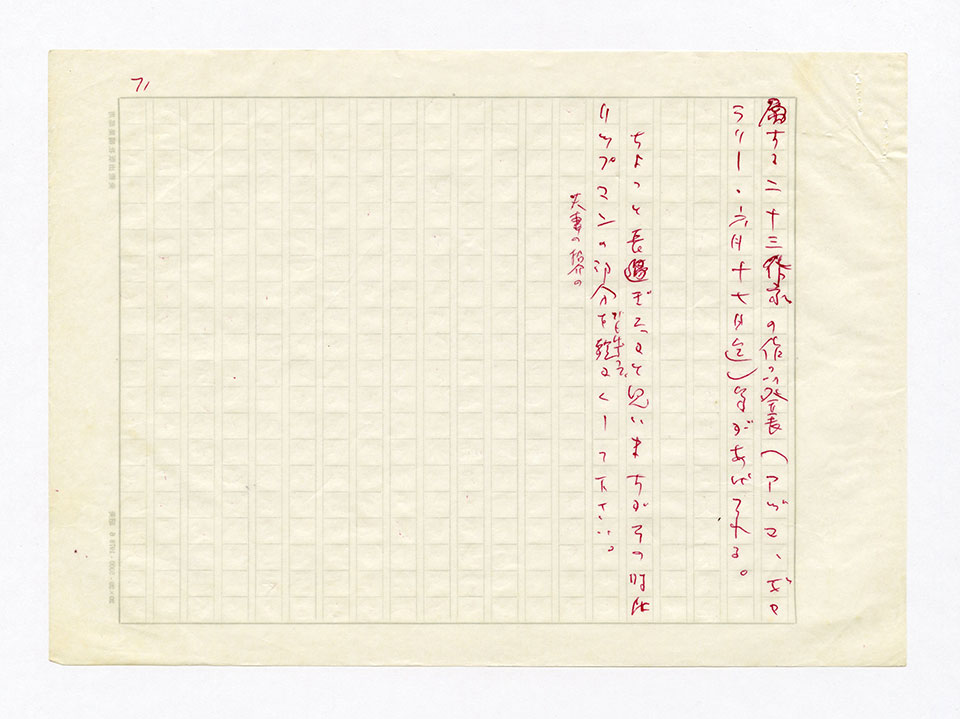 71
属する二十三作家の作品発表（アヅマ、ギャ
ラリー・六月十七日迄）等があげられる。
ちょっと長過ぎると思いますがその時は
リップマンの部分を
くして下さい。
夫妻の紹介の